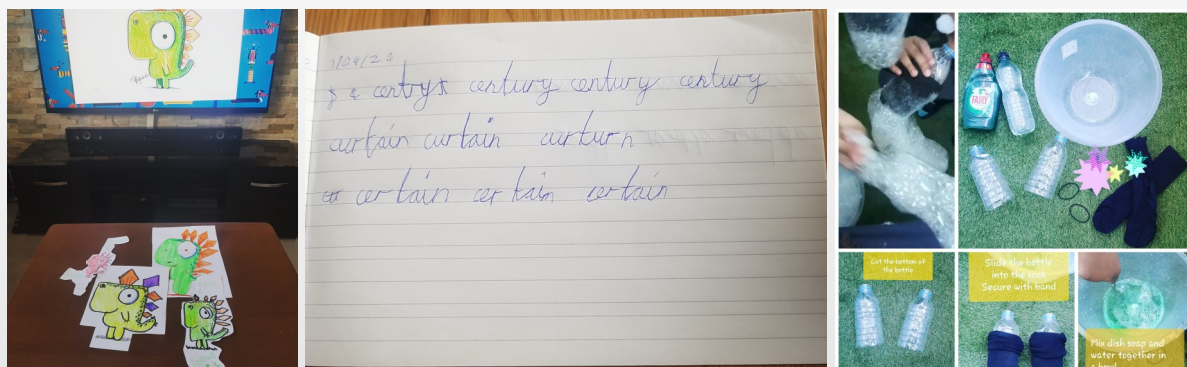 1/04/20
century century century
curtain curtain curturn
certain certain certain
FAIRY
Cut the bottom of
the bottle
Slide the bottle
into the sock
Secure with band
Mix dish soap and
water together in
a bowl